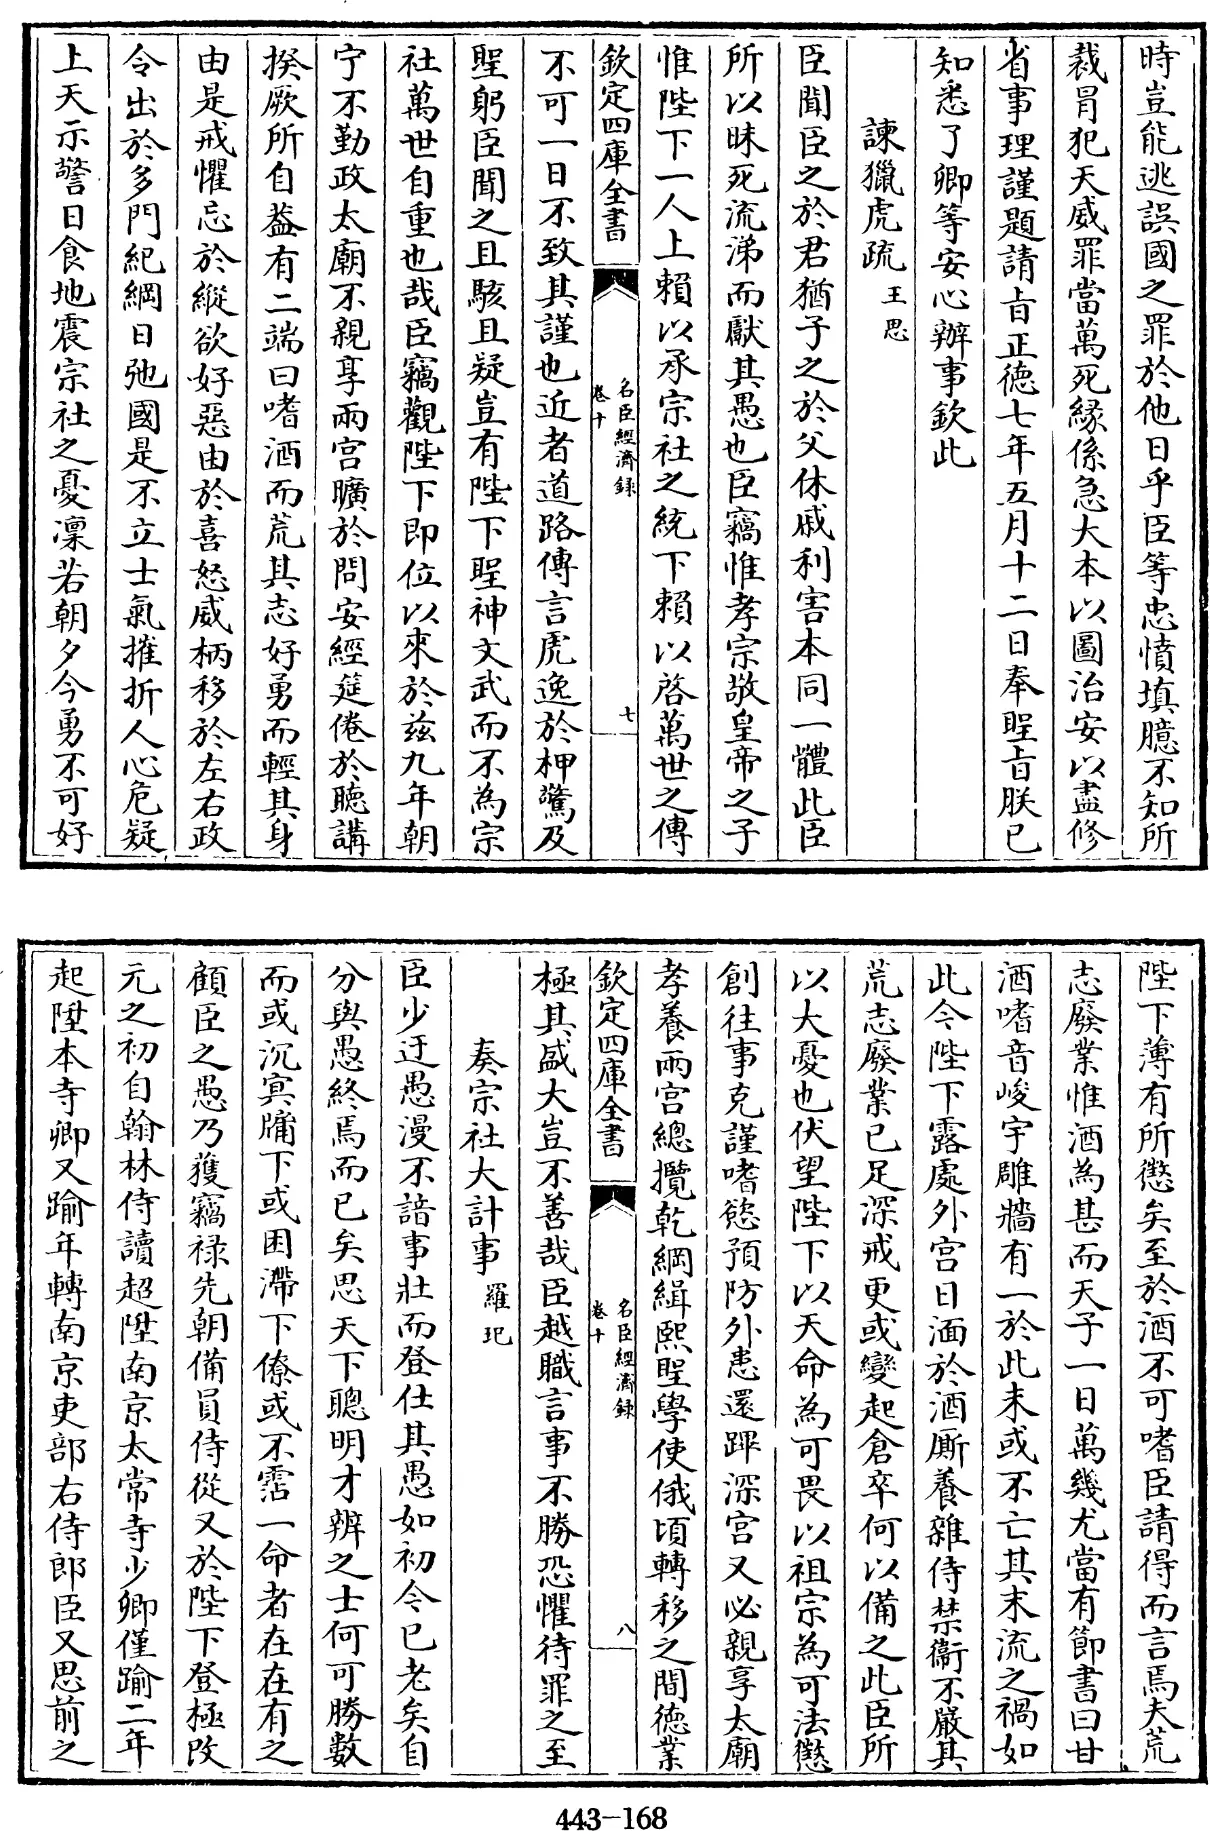 時豈能逃誤國之罪於他日乎臣等忠憤填臆不知所
裁冐犯天威罪當萬死緣係急大本以圖治安以盡修
省事理謹題請㫖正徳七年五月十二日奉聖㫖朕已
知悉了卿等安心辦事欽此
諫獵虎疏 王思
臣聞臣之於君猶子之於父休戚利害本同一體此臣
所以昧死流涕而獻其愚也臣竊惟孝宗敬皇帝之子
惟陛下一人上賴以承宗社之統下賴以啓萬世之傳
欽定四庫全書 名臣經濟録 卷十 七
不可一日不致其謹也近者道路傳言虎逸於柙驚及
聖躬臣聞之且駭且疑豈有陛下聖神文武而不為宗
社萬世自重也哉臣竊觀陛下即位以來於兹九年朝
宁不勤政太廟不親享兩宫曠於問安經筵倦於聴講
揆厥所自葢有二端曰嗜酒而荒其志好勇而輕其身
由是戒懼忘於縱欲好惡由於喜怒威柄移於左右政
令出於多門紀綱日弛國是不立士氣摧折人心危疑
上天示警日食地震宗社之憂凛若朝夕今勇不可好
陛下薄有所懲矣至於酒不可嗜臣請得而言焉夫荒
志廢業惟酒為甚而天子一日萬幾尤當有節書曰甘
酒嗜音峻宇雕牆有一於此未或不亡其末流之禍如
此今陛下露處外宫日湎於酒厮養雜侍禁衞不嚴其
荒志廢業已足深戒更或變起倉卒何以備之此臣所
以大憂也伏望陛下以天命為可畏以祖宗為可法懲
創往事克謹嗜慾預防外患還蹕深宫又必親享太廟
孝養兩宫總攬乾綱緝熙聖學使俄頃轉移之間徳業
欽定四庫全書 名臣經濟録 卷十 八
極其盛大豈不善哉臣越職言事不勝恐懼待罪之至
奏宗社大計事 羅玘
臣少迂愚漫不諳事壯而登仕其愚如初今已老矣自
分與愚終焉而已矣思天下聰明才辨之士何可勝數
而或沉冥牗下或困滯下僚或不霑一命者在在有之
顧臣之愚乃獲竊禄先朝備員侍從又於陛下登極改
元之初自翰林侍讀超陞南京太常寺少卿僅踰二年
起陞本寺卿又踰年轉南京吏部右侍郎臣又思前之
443-168